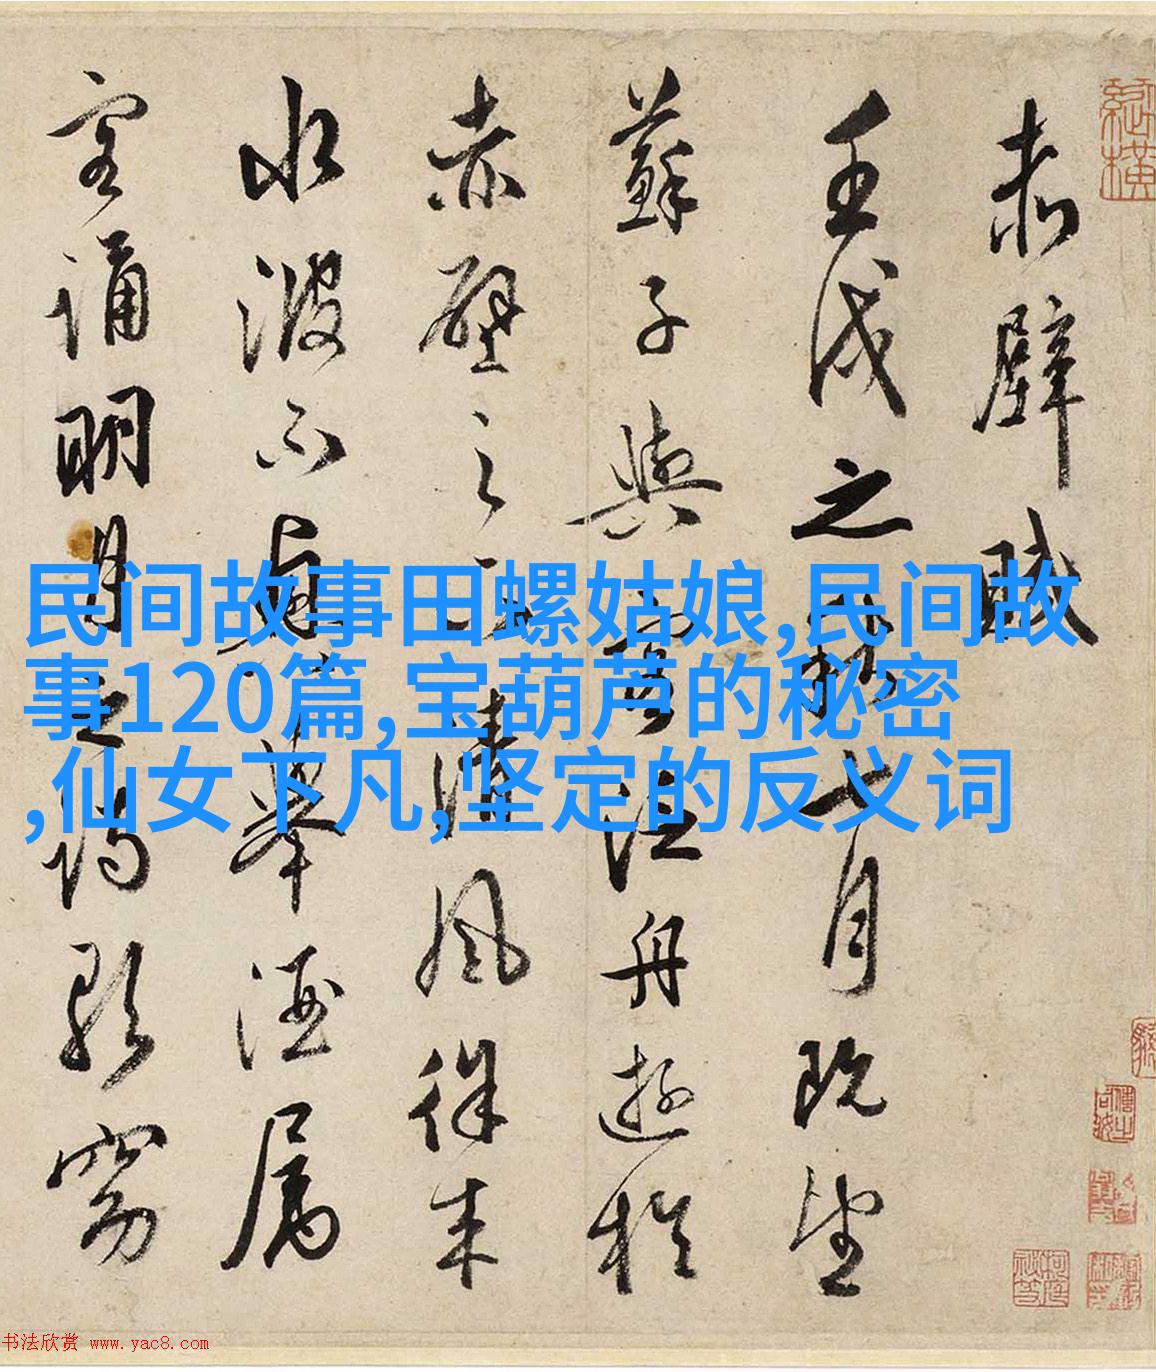 赤壁賦
壬戌之秋七月既望
蘇子與客泛舟遊於
赤壁之下清風徐来
水波不興舉酒屬
客誦明月之詩歌窈
民间故事田螺姑娘,民间故
事120篇,宝葫芦的秘密
,仙女下凡,坚定的反义词
书法欣赏 www.yac8.com